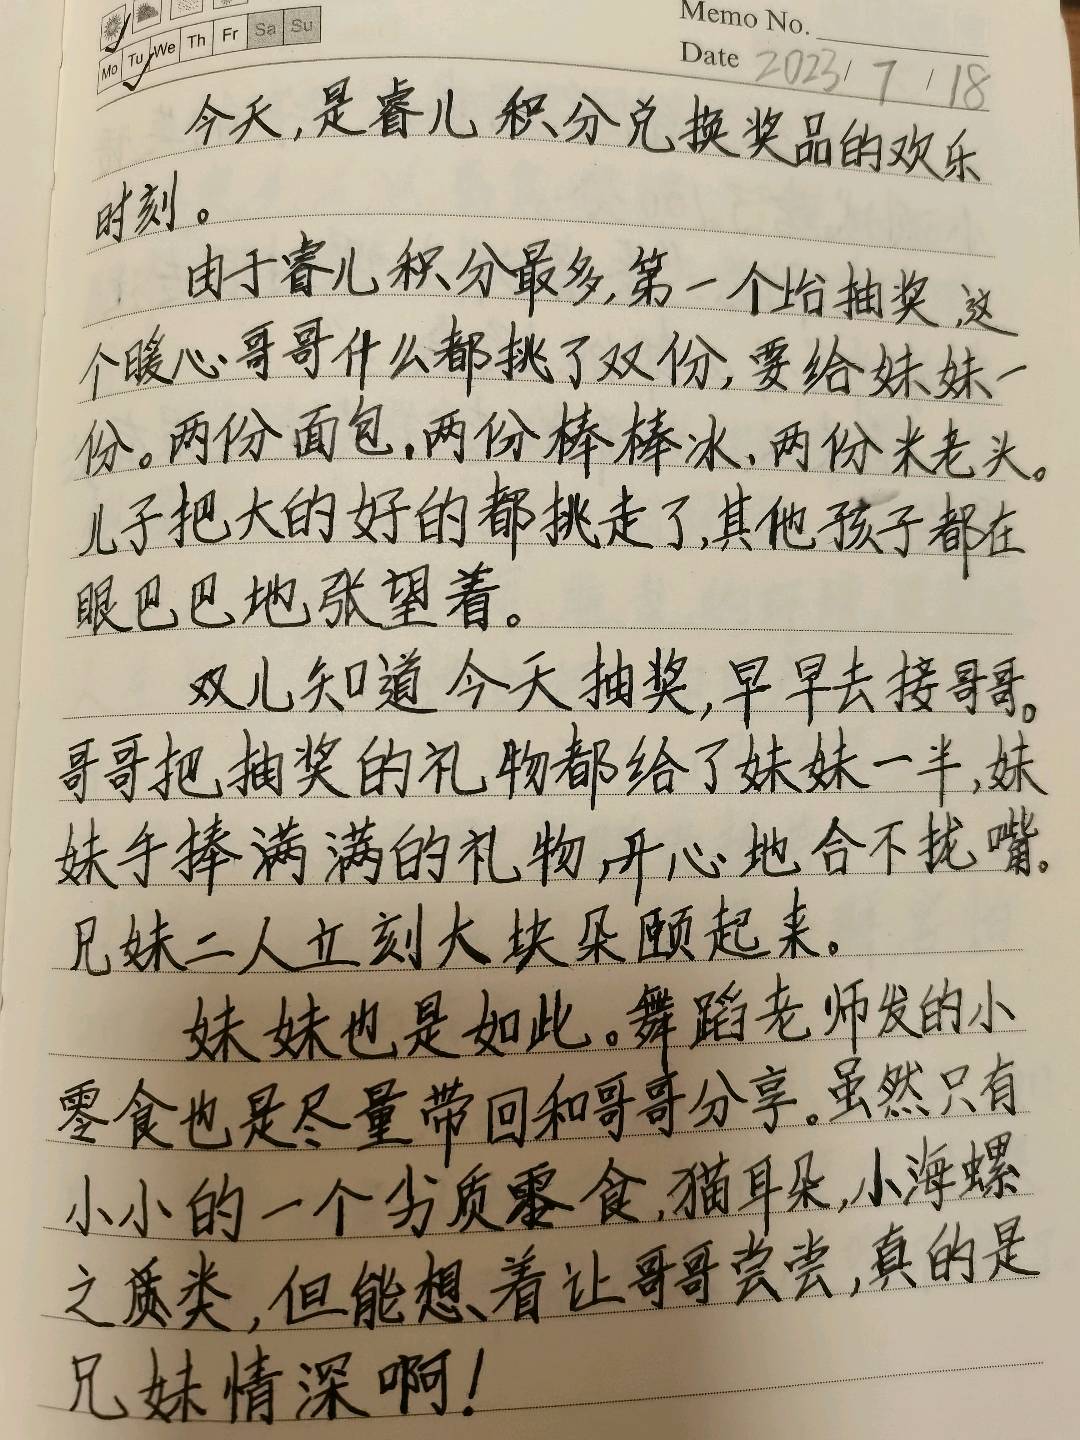 Memo No.
Mo Tu We Th Fr Sa Su
Date 2023 / 7 / 18
今天,是睿儿积分兑换奖品的欢乐
时刻。
由于睿儿积分最多,第一个抬抽奖,这
个暖心哥哥什么都挑了双份,要给妹妹一
份。两份面包,两份棒棒冰,两份米老头。
儿子把大的好的都挑走了,其他孩子都在
眼巴巴地张望着。
双儿知道今天抽奖,早早去接哥哥。
哥哥把抽奖的礼物都给了妹妹一半,妹
妹手捧满满的礼物,开心地合不拢嘴。
兄妹二人立刻大块朵颐起来。
妹妹也是如此。舞蹈老师发的小
零食也是尽量带回和哥哥分享。虽然只有
小小的一个劣质零食,猫耳朵,小海螺
之质类,但能想着让哥哥尝尝,真的是
兄妹情深啊!